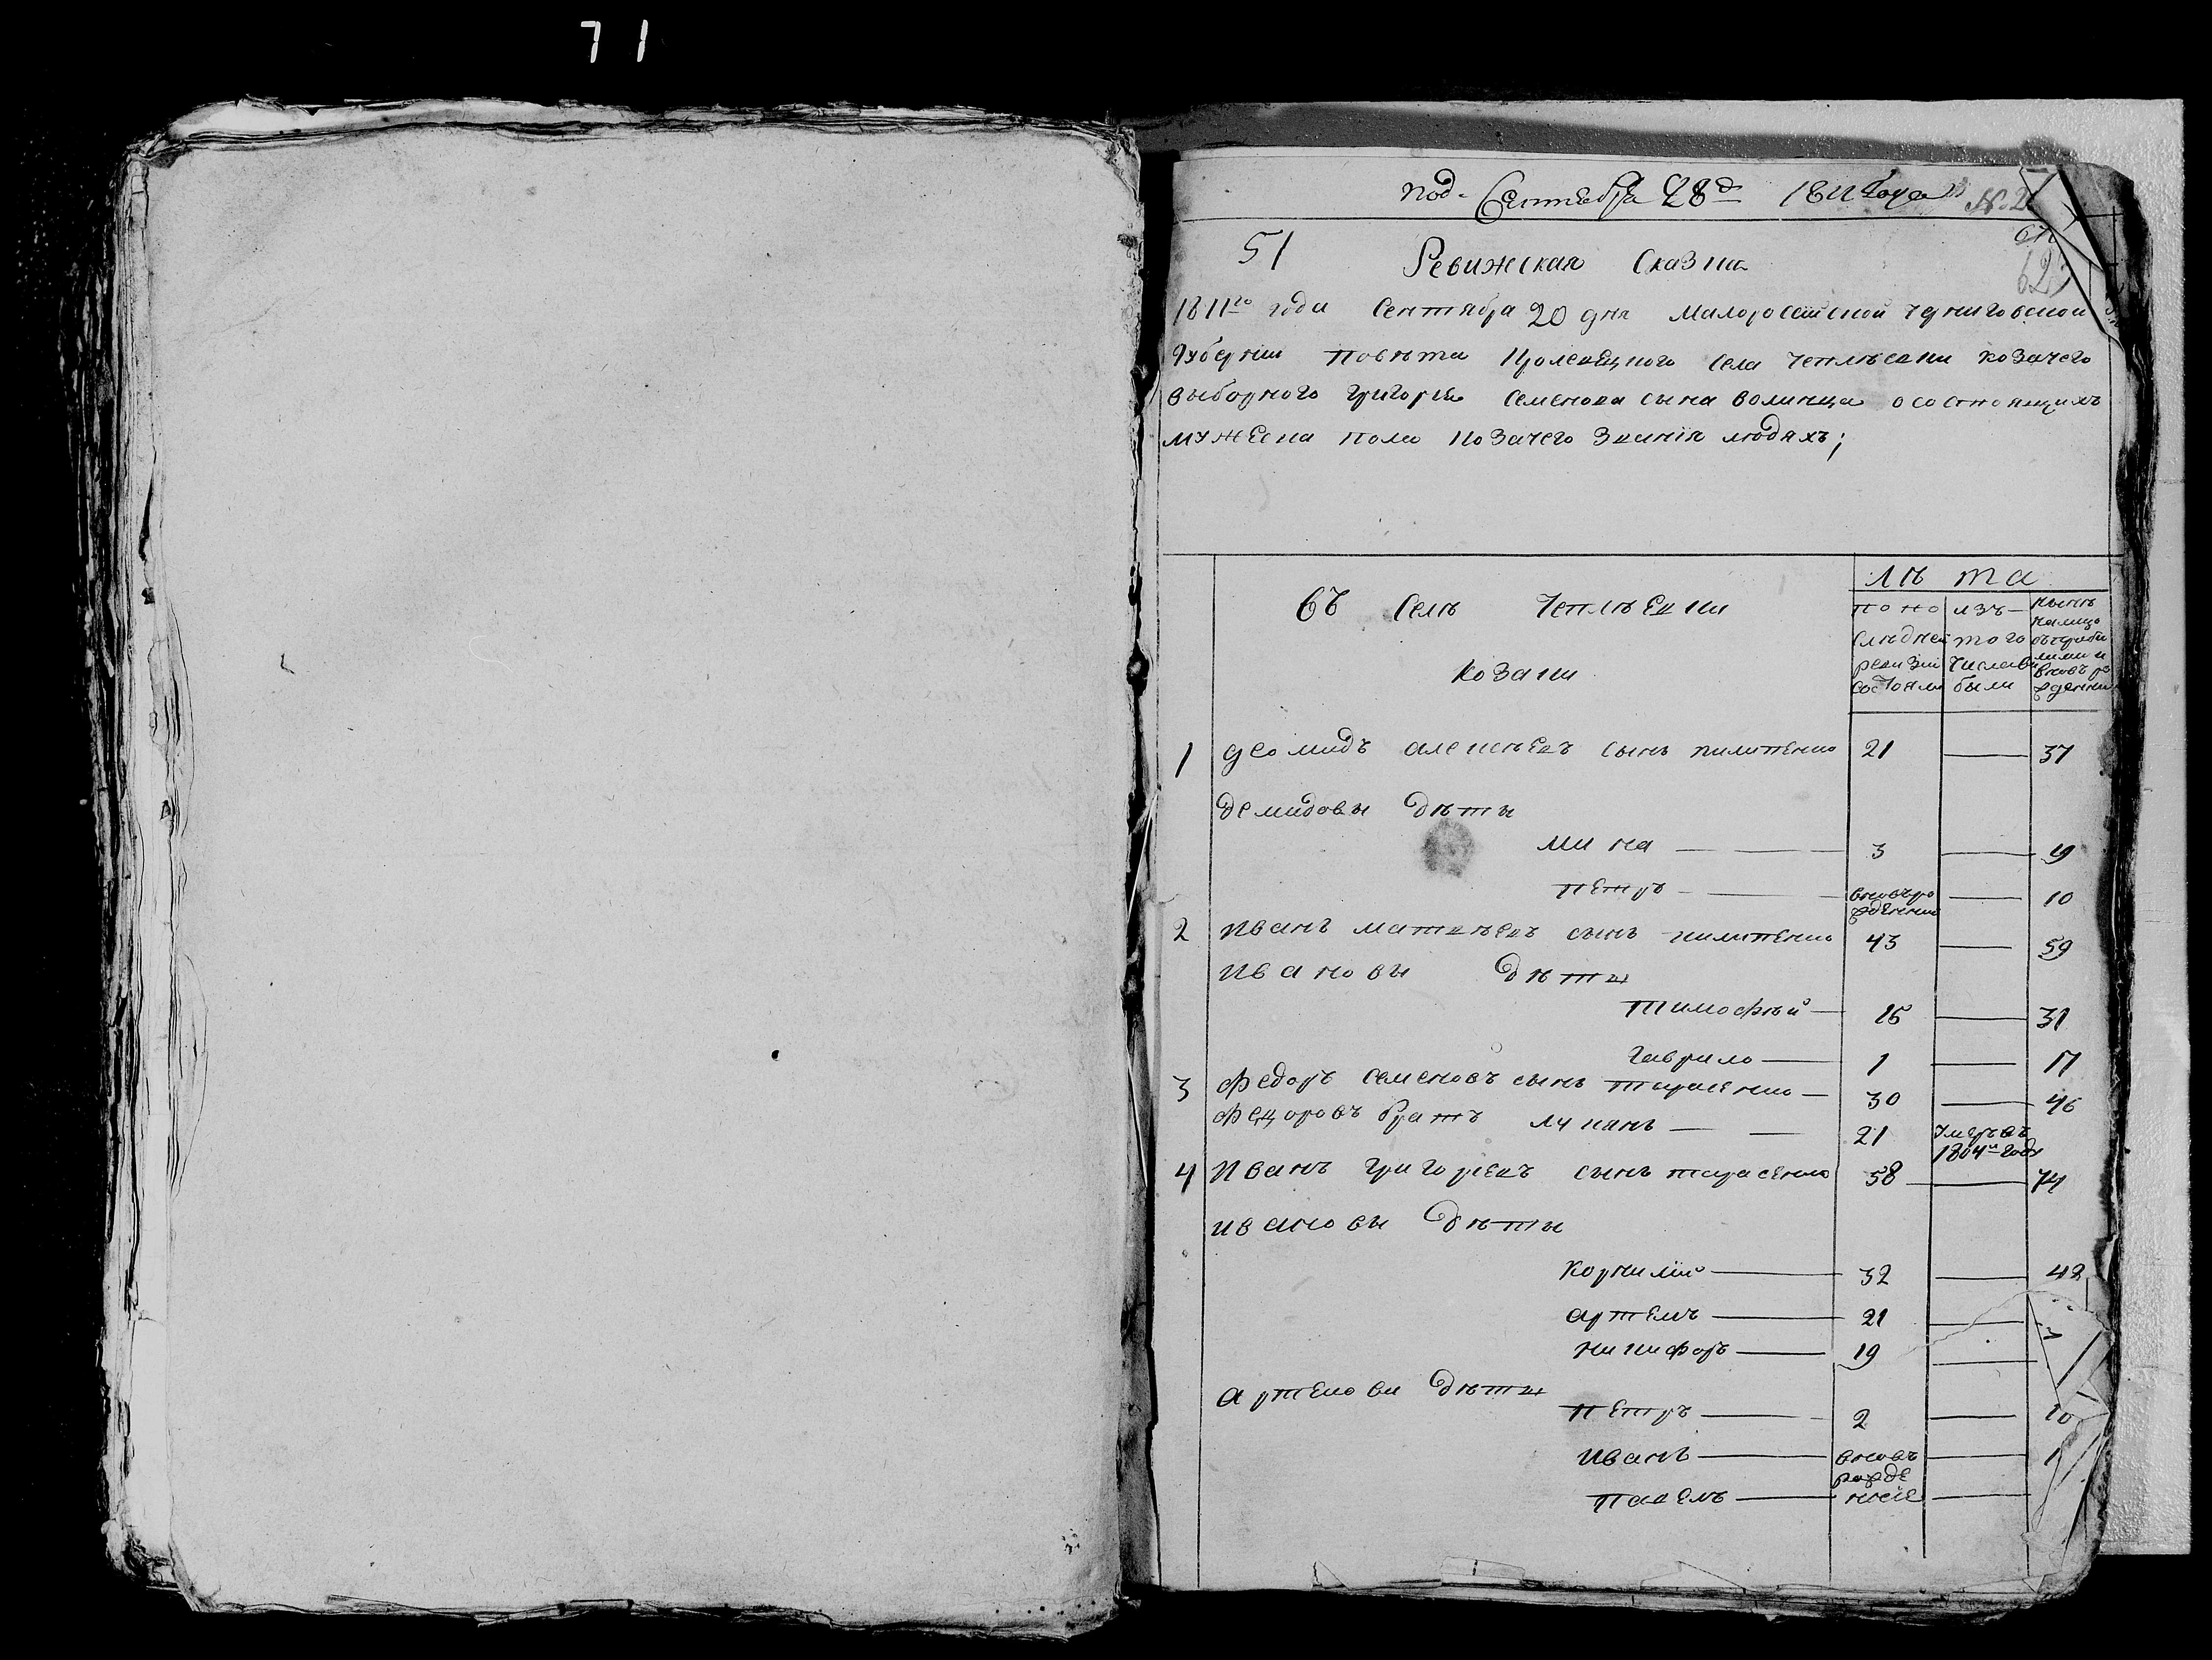 71
Под. Сентября 28д 1811 Года №2
51 Ревижская Сказка 62
1811го года Сентября 20 дня Малоросейской Черниговской
Губернии Повѣта Кролевецкого Села Чеплѣевки козачего
выборного Григорія Семенова сына Волинца о состоящихъ
мужеска пола козачего званія людяхъ;
лѣта
Въ Селѣ Чеплѣевки
козаки
по по слѣдней ревизіи состояли
изъ того числа выбыли
нынѣ налицо
1 Деомидъ Алексѣевъ сынъ Пилипенко 21 — 37
Демидовы дѣты
Мина — 3 — 19
Петръ — вновьро жденний — 10
2 Иванъ Матвѣевъ сынъ Пилипенко 43 — 59
Ивановы дѣты
Тимофѣй — 15 — 31
Гаврило — 1 — 17
3 Федоръ Семеновъ сынъ Тарасенко — 30 — 46
Федоровъ братъ Лукянъ — 21 Умеръ въ 1804м году
4 Иванъ Григоревъ сынъ Тарасенко 58 — 74
Ивановы дѣты
Корнилій — 32 — 48
Артемъ — 21 —
Никифоръ — 19 —
Артемовы дѣты
Петръ — 2 —
Иванъ — вновь
рожде
Павелъ — нние —